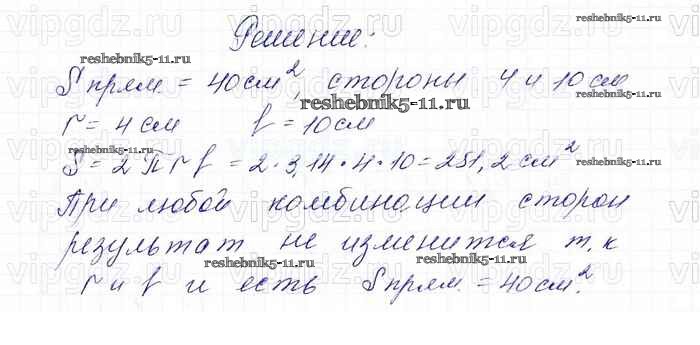 Решение:
S прям. = 40 см², стороны 4 и 10 см
r = 4 см    f = 10 см
S = 2 П r f = 2 · 3,14 · 4 · 10 = 251,2 см²
При любой комбинации сторон
результат не изменится т.к
r и f и есть S прям. = 40 см².
vipgdz.com
reshebnik5-11.ru
reshebnik5-11.ru
reshebnik5-11.ru
reshebnik5-11.ru
reshebnik5-11.ru
reshebnik5-11.ru
reshebnik5-11.ru
reshebnik5-11.ru